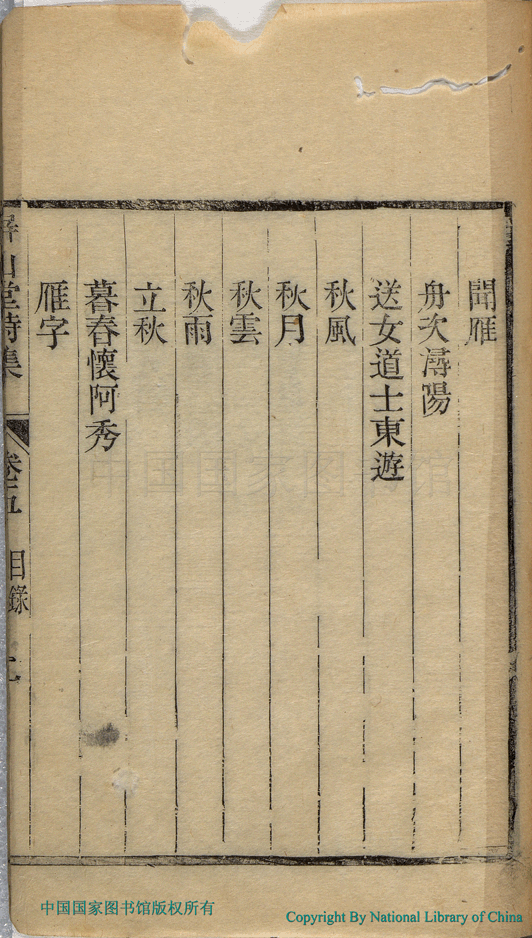 聞雁
舟次潯陽
送女道士東遊
秋風
秋月
秋雲
秋雨
立秋
暮春懷阿秀
雁字
山堂詩集
卷五 目錄
中国国家图书馆
中国国家图书馆版权所有
Copyright By National Library of China